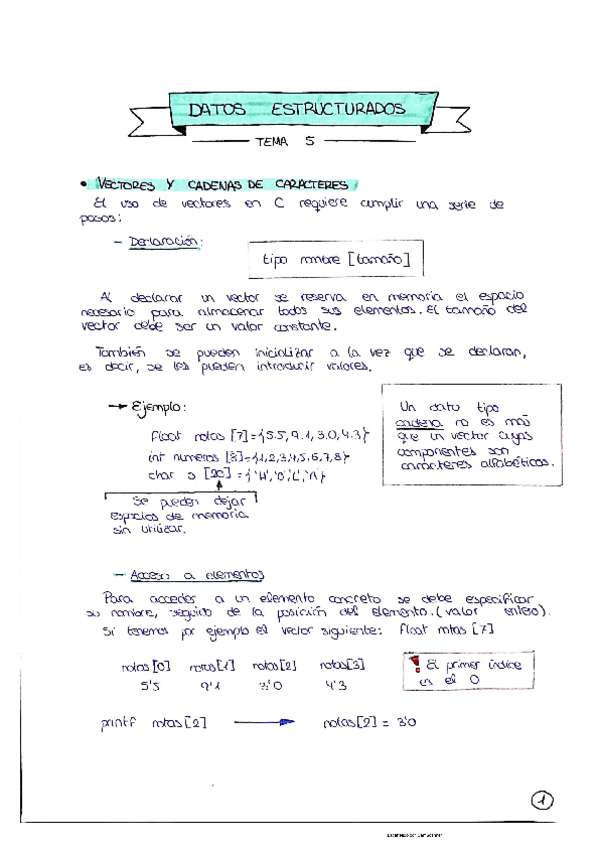 DATOS ESTRUCTURADOS
TEMA 5
• VECTORES Y CADENAS DE CARACTERES
El uso de vectores en C requiere cumplir una serie de
pasos:
- Declaración:
tipo nombre [tamaño]
Al declarar un vector se reserva en memoria el espacio
necesario para almacenar todos sus elementos. El tamaño del
vector debe ser un valor constante.
También se pueden inicializar a la vez que se declaran,
es decir, se les pueden introducir valores.
→ Ejemplo:
float notas [7]={5.5, 9.1, 3.0, 4.3}
int numeros [8]={1,2,3,4,5,6,7,8}
char s [20] = {'H','O','L','A'}
Se pueden dejar
espacios de memoria
sin utilizar.
Un dato tipo
cadena no es más
que un vector cuyas
componentes son
carácteres alfabéticos.
- Acceso a elementos
Para acceder a un elemento concreto se debe especificar
su nombre, seguido de la posición del elemento. (valor entero).
Si tenemos por ejemplo el vector siguiente: float notas [7]
notas [0] notas [1] notas [2] notas [3]
5'5 9'1 3'0 4'3
! El primer índice
es el 0
printf notas [2] → notas [2] = 3'0
1